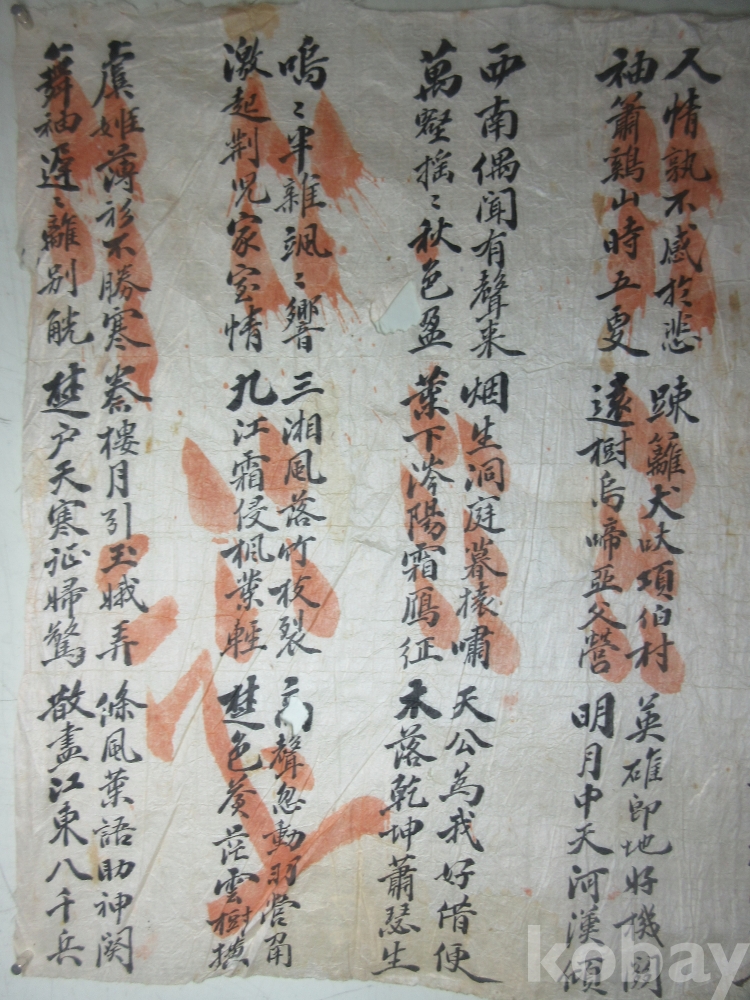 人情孰不感於悲
袖簫鷄山時五更
踈籬犬吠項伯村
遠樹烏啼亞父營
英雄即地好機關
明月中天河漢傾
西南偶聞有聲來
萬壑搖〻秋色盈
烟生洞庭暮猿嘯
葉下涔陽霜鴈征
天公為我好借便
木落乾坤蕭瑟生
嗚〻半雜颯〻響
激起荆児家室情
三湘風落竹枝裂
九江霜侵楓葉輕
聲忽動羽營
楚色蒼茫雲樹橫
虞姬薄衫不勝寒
舞袖遲〻離別觥
秦樓月引玉娥弄
楚戶天寒征婦驚
風葉語助神闋
散盡江東八千兵
kobay